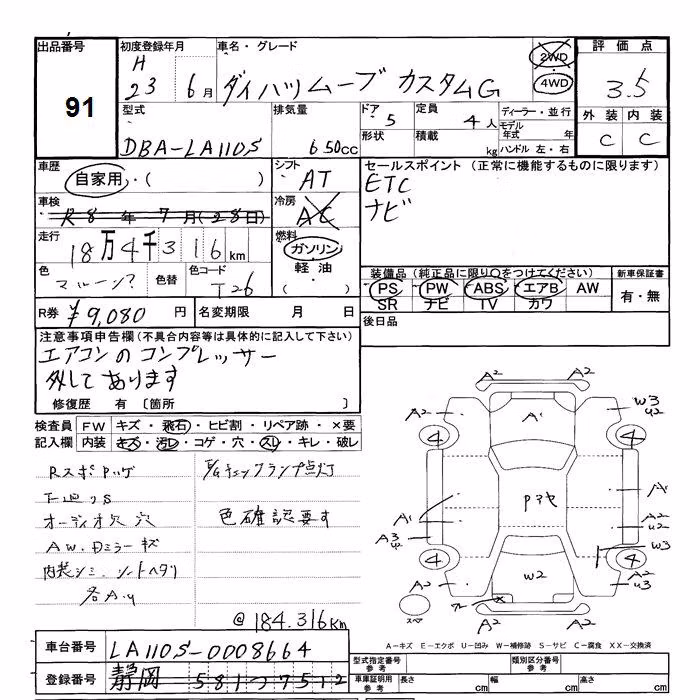 出品番号 初度登録年月 車名・グレード 評価点
91
H 23 6月 ダイハツムーブ カスタムG 2WD 4WD 3.5
型式 排気量 ドア 5 定員 4人 ディーラー・並行 外装 内装
形状 積載 kg モデル年式 年
DBA-LA110S 650cc ハンドル 左・右 C C
車歴 シフト セールスポイント (正常に機能するものに限ります)
自家用・( ) AT ETC
車検 冷房 ナビ
R8年7月(28日) AC
走行 燃料
18万4千316km ガソリン
色 色替 色コード 軽油 装備品(純正品に限り○をつけてください) 新車保証書
マルーン? T26 ( ) PS PW ABS エアB AW 有・無
SR ナビ TV カワ
R券 ¥9,080円 名変期限 月 日 後日品
注意事項申告欄(不具合内容等は具体的に記入して下さい)
エアコンのコンプレッサー
外してあります
修復歴 有 〔箇所 〕
検査員 FW キズ・飛石・ヒビ割・リペア跡・×要
記入欄 内装 キズ・汚レ・コゲ・穴・スレ・キレ・破レ
E/Gチェックランプ点灯
オーディオ欠 穴 色確認要す
AW.Dミラーキズ
内装シミ.シートヘタリ
各A.U
@184.316km
A1
A2 A2
A2 W3 U2
4 4
A1 A1
A2 U2
A3 U2 W3
4 4
A2 W2 A2 U3
スペア
A2 A2
A-キズ E-エクボ U-凹み W-補修跡 S-サビ C-腐食 XX-交換済
車台番号 LA110S-0008664
登録番号 静岡 581 つ 7512
型式指定番号 参考 類別区分番号 参考
車庫証明用 参考 長さ cm 幅 cm 高さ cm